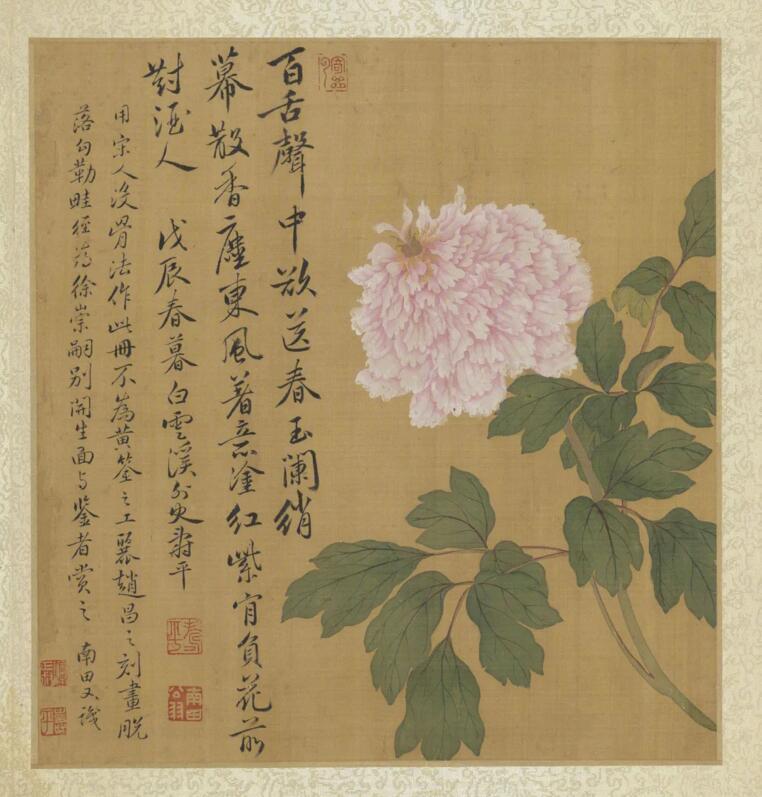 百舌聲中欲送春玉闌綃
幕散香塵東風著意塗紅紫肯負花前
對酒人 戊辰春暮白雲溪外史壽平
用宋人沒骨法作此冊不為黃筌之工麗趙昌之刻畫脫
落勾勒畦徑為徐崇嗣別開生面与鑒者賞之 南田又識